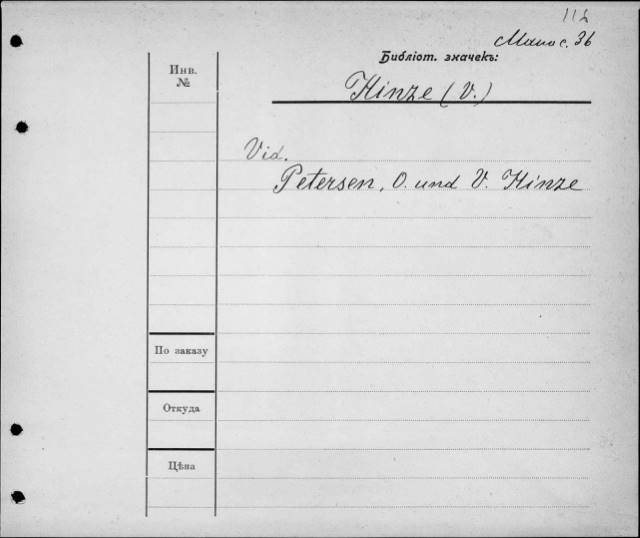 112
с. 36
Библіот. значекъ:
Инв.
№
Hinze (V.)
Vid.
Petersen, O. und V. Hinze
По заказу
Откуда
Цѣна